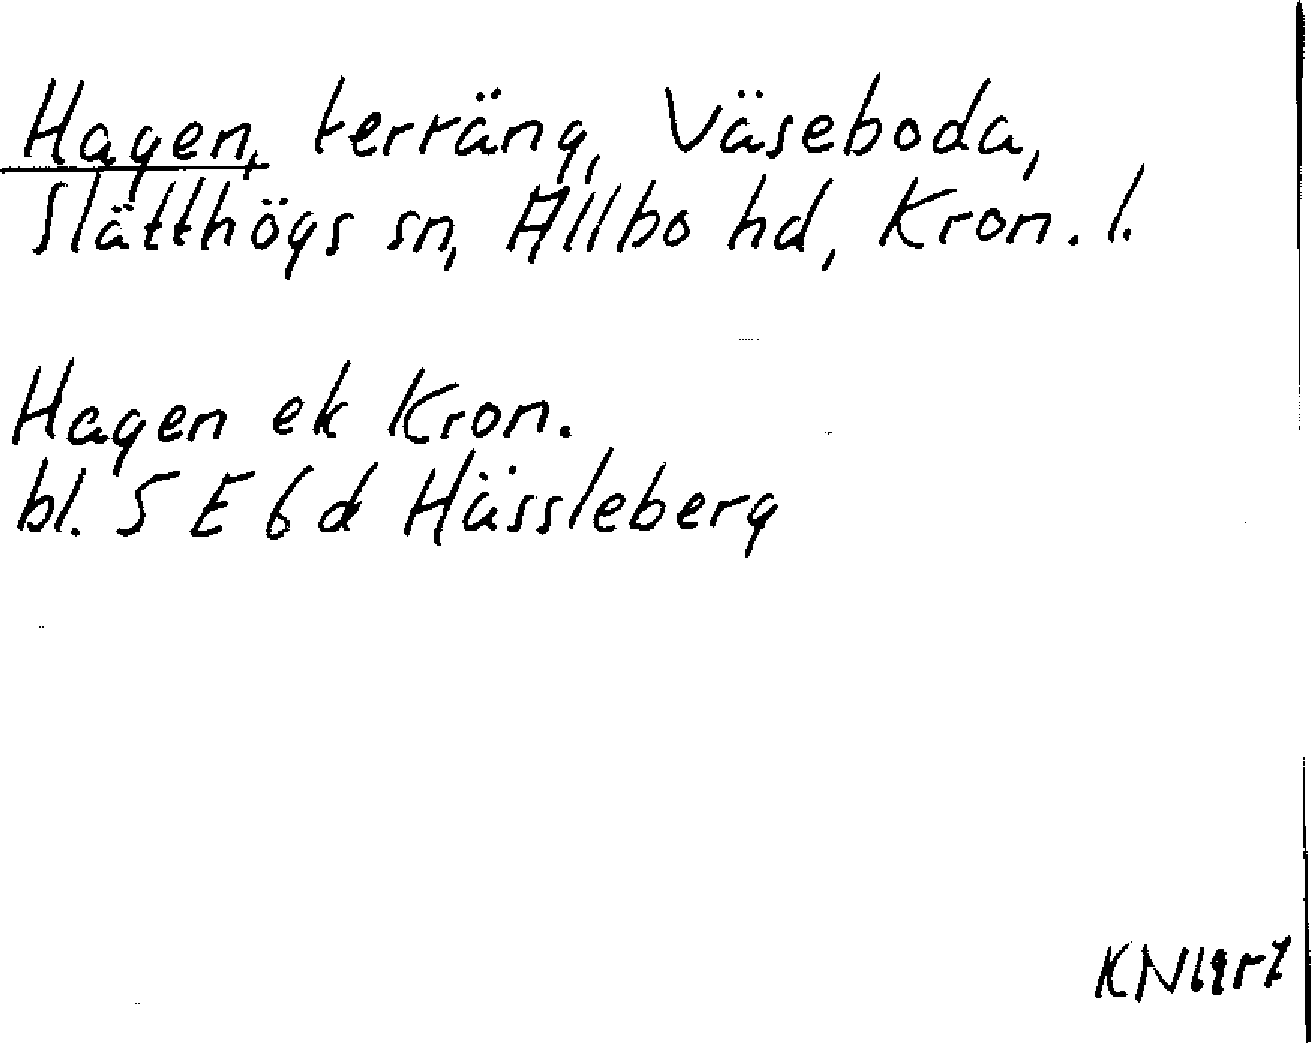 Hagen, terräng, Väseboda,
Slätthögs sn, Allbo hd, Kron. l.
Hagen ek Kron.
bl. 5 E 6 d Hässleberg
KN 1957